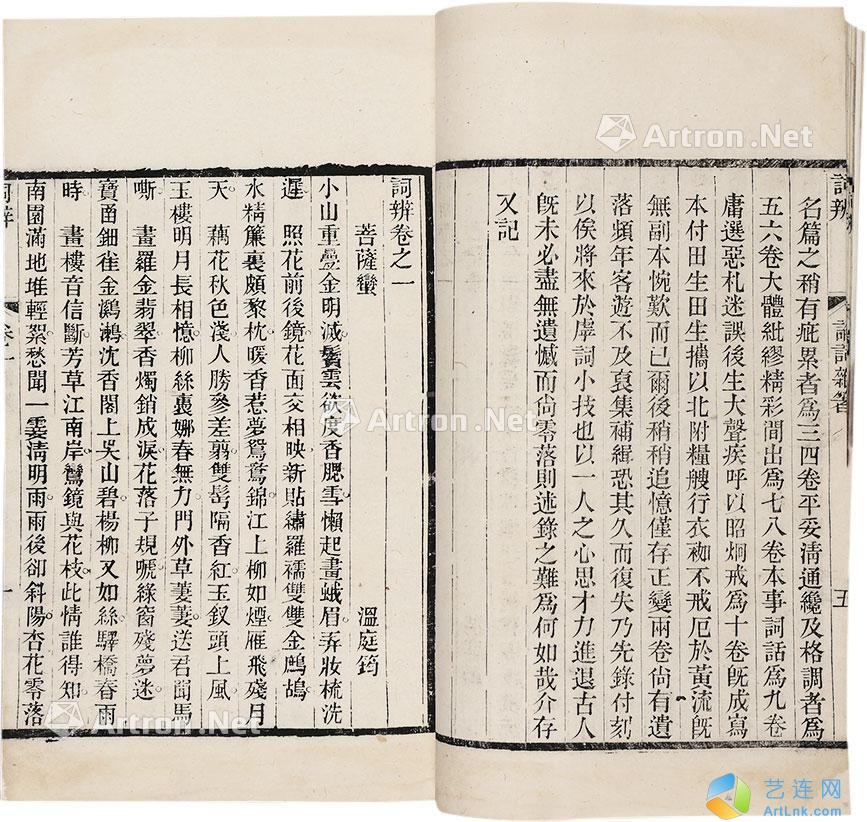 名篇之稍有疵累者爲三四卷平妥淸通纔及格調者爲
五六卷大體紕繆精彩間出爲七八卷本事詞話爲九卷
庸選惡札迷誤後生大聲疾呼以昭炯戒爲十卷旣成寫
本付田生田生攜以北附糧艘行衣袽不戒厄於黃流旣
無副本惋歎而已爾後稍稍追憶僅存正變兩卷尙有遺
落頻年客遊不及裒集補緝恐其久而復失乃先錄付刻
以俟將來於虖詞小技也以一人之心思才力進退古人
旣未必盡無遺憾而尙零落則述錄之難爲何如哉介存
又記
詞辨卷之一
菩薩蠻 溫庭筠
小山重疊金明滅鬢雲欲度香腮雪懶起畫蛾眉弄妝梳洗
遲 照花前後鏡花面交相映新貼繡羅襦雙雙金鷓鴣
水精簾裏頗黎枕暖香惹夢鴛鴦錦江上柳如煙雁飛殘月
天 藕花秋色淺人勝參差剪雙鬢隔香紅玉釵頭上風
玉樓明月長相憶柳絲裊娜春無力門外草萋萋送君聞馬
嘶 畫羅金翡翠香燭銷成淚花落子規嗁綠窗殘夢迷
寶函鈿雀金鸂鶒沈香閣上吳山碧楊柳又如絲驛橋春雨
時 畫樓音信斷芳草江南岸鸞鏡與花枝此情誰得知
南園滿地堆輕絮愁聞一霎淸明雨雨後卻斜陽杏花零落
詞辨
卷一
一
詞辨
五
Artron.Net
Artron.Net
Artron.Net
Artron.Net
艺连网
ArtLnk.com